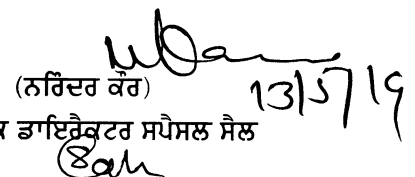 (ਨਰਿੰਦਰ ਕੌਰ)
13/5/19
ਡਾਇਰੈਕਟਰ ਸਪੈਸਲ ਸੈਲ